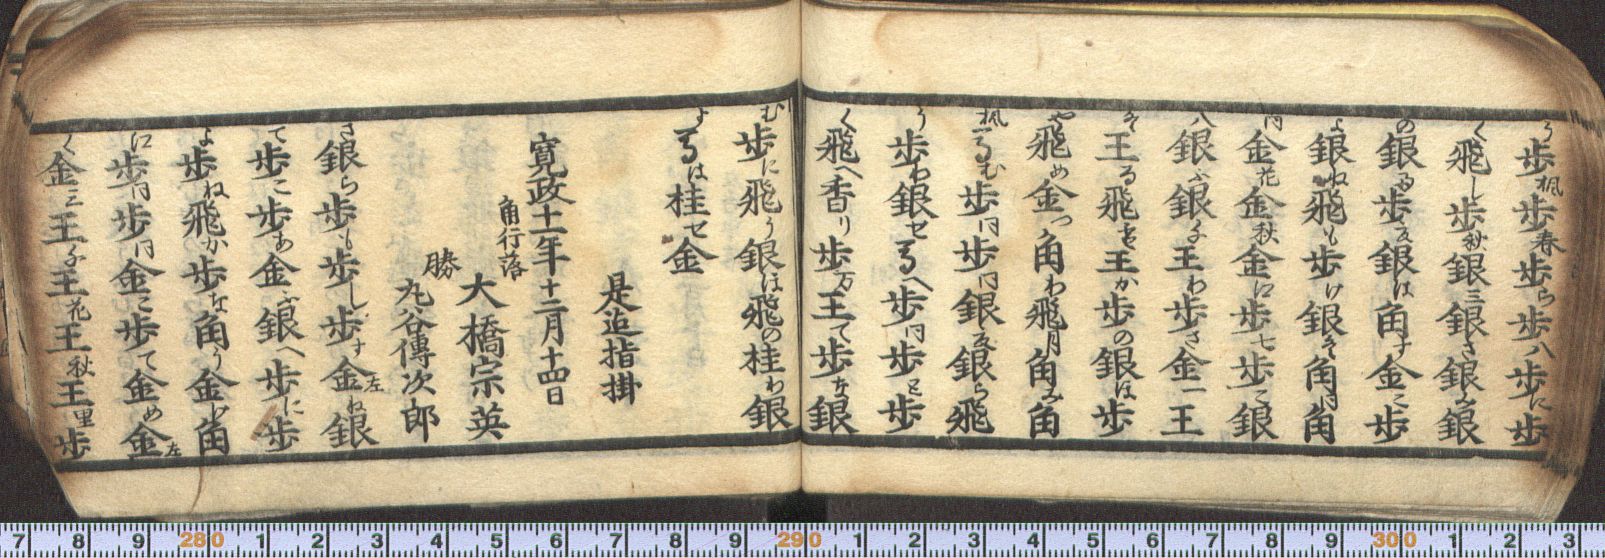 う歩楓歩春歩ら歩八歩に歩
く飛し歩秋銀三銀さ銀え銀
の銀歩え銀は角す金こ歩
よ銀ね飛も歩け銀そ角円角
円金花金秋金に歩七歩て銀
八銀ふ銀子王わ歩さ金二王
そ王る飛を王か歩の銀ほ歩
や飛め金つ角わ飛月角み角
楓馬む歩円歩円銀え銀ら飛
う歩わ銀せ馬へ歩円歩と歩
く飛へ香り歩万王て歩な銀
む歩に飛う銀は飛の桂わ銀
よ馬は桂せ金
是迄指掛
寛政十一年十二月十四日
角行落
大橋宗英
勝
丸谷傳次郎
さ銀ら歩も歩し歩す金左ね銀
て歩こ歩あ金ふ銀へ歩に歩
よ歩ね飛か歩な角う金少角
江歩円歩円金こ歩て金め金左
く金三王子王花王秋王里歩
7 8 9 280 1 2 3 4 5 6 7 8 9 290 1 2 3 4 5 6 7 8 9 300 1 2 3